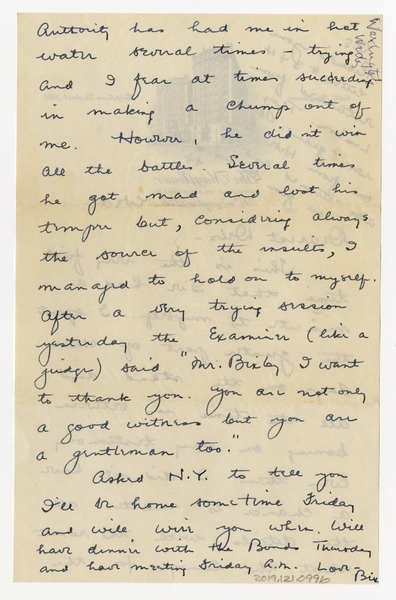 Authority has had me in hot
water several times - trying
and I fear at times succeeding
in making a chump out of
me. However, he didn't win
all the battles. Several times
he got mad and lost his
temper but, considering always
the source of the insults, I
managed to hold on to myself.
After a very trying session
yesterday the Examiner (like a
judge) said "Mr. Bixby I want
to thank you. You are not only
a good witness but you are
a gentleman too."
Asked N.Y. to tell you
I'll be home sometime Friday
and will wire you when. Will
have dinner with the Bonds Thursday
and have meeting Friday A.M. Love-
Bix
2019.121.0996
Washington
Wed.